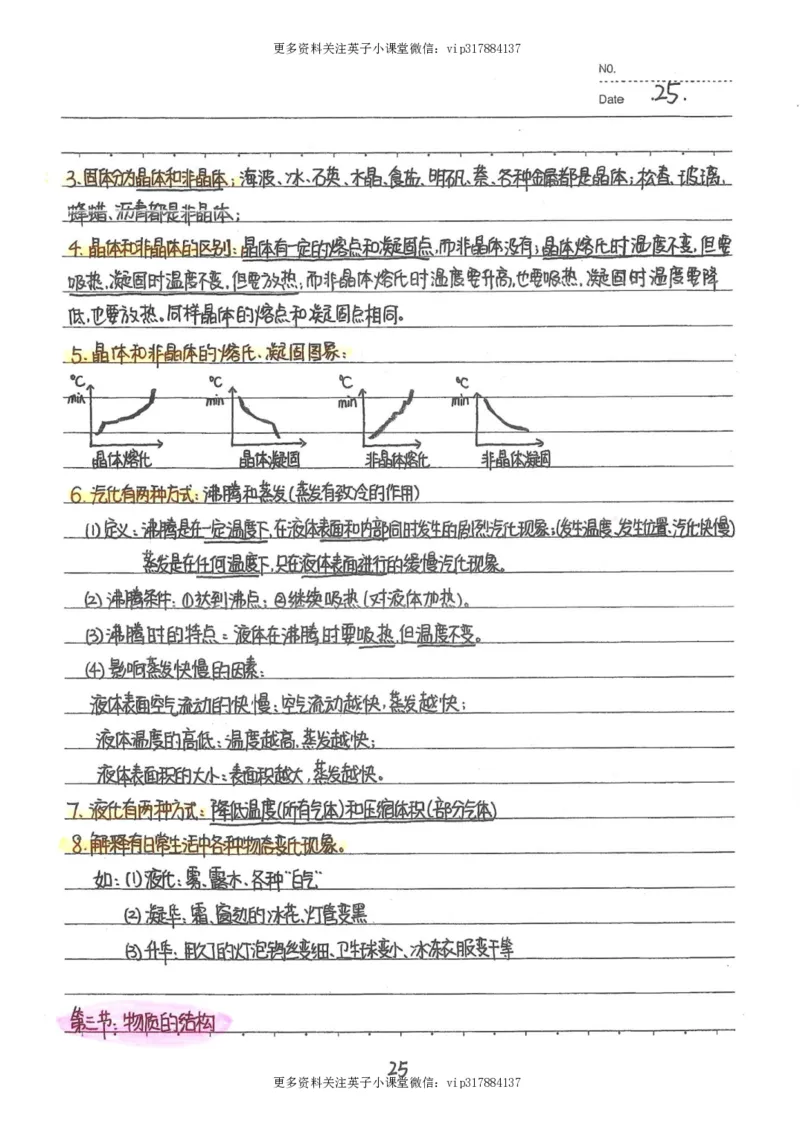 更多资料关注英子小课堂微信：vip317884137
NO.
Date 25.
3.固体分为晶体和非晶体；海波、冰、石英、水晶、食盐、明矾、萘、各种金属都是晶体；松香、玻璃、
蜂蜡、沥青都是非晶体；
4.晶体和非晶体的区别：晶体有一定的熔点和凝固点，而非晶体没有；晶体熔化时温度不变，但要
吸热，凝固时温度不变，但要放热；而非晶体熔化时温度要升高，也要吸热，凝固时温度要降
低，也要放热。同样晶体的熔点和凝固点相同。
5.晶体和非晶体的熔化、凝固图象：
℃ ℃ ℃ ℃
min min min min
晶体熔化 晶体凝固 非晶体熔化 非晶体凝固
6.汽化有两种方式：沸腾和蒸发(蒸发有致冷的作用)
(1)定义：沸腾是在一定温度下，在液体表面和内部同时发生的剧烈汽化现象；(发生温度、发生位置、汽化快慢)
蒸发是在任何温度下，只在液体表面进行的缓慢汽化现象。
(2)沸腾条件：①达到沸点；②继续吸热(对液体加热)。
(3)沸腾时的特点：液体在沸腾时要吸热，但温度不变。
(4)影响蒸发快慢的因素：
液体表面空气流动的快慢：空气流动越快，蒸发越快；
液体温度的高低：温度越高，蒸发越快；
液体表面积的大小：表面积越大，蒸发越快。
7.液化有两种方式：降低温度(所有气体)和压缩体积(部分气体)
8.解释有日常生活中各种物态变化现象。
如：(1)液化：雾、露水、各种“白气”
(2)凝华：霜、窗边的冰花、灯管变黑
(3)升华：用久了的灯泡钨丝变细、卫生球变小、冰冻衣服变干等
第三节：物质的结构
25
更多资料关注英子小课堂微信：vip317884137